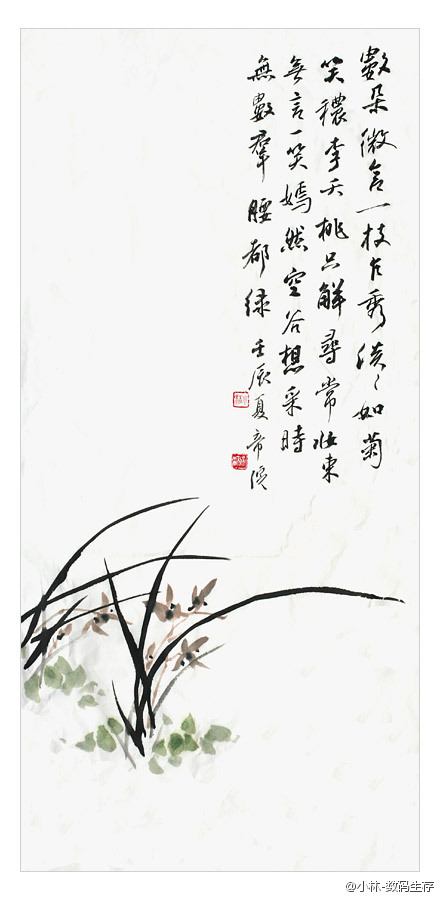 數朵微含一枝乍秀淡〻如菊
笑穠李夭桃只解尋常妝束
無言一笑嫣然空谷想采時
無數羣腰都綠
壬辰夏帝
@小林-数码生存